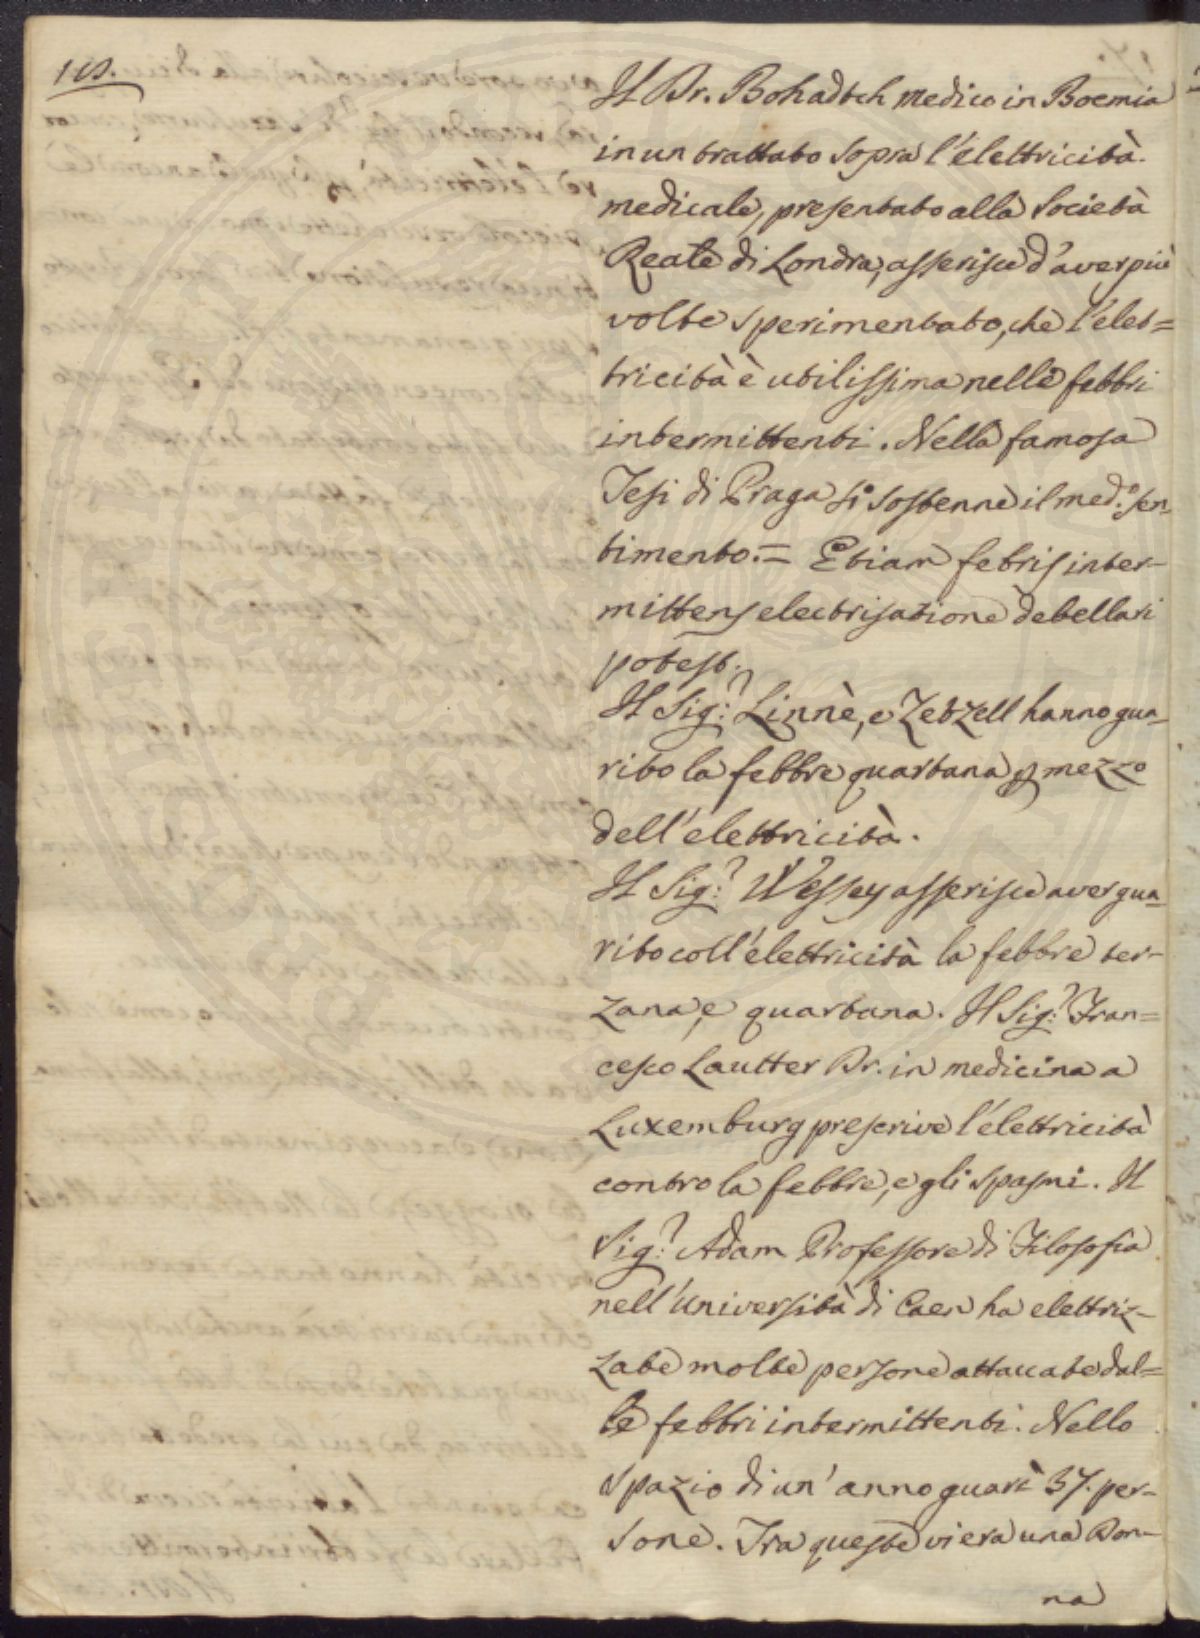 118.
Il Dr. Bohadtch medico in Boemia
in un trattato sopra l'elettricità
medicale, presentato alla Società
Reale di Londra, asserisce d'aver più
volte sperimentato, che l'elet=
tricità è utilissima nelle febbri
intermittenti. Nella famosa
Tesi di Praga si sostenne il med.º sen=
timento. = Etiam febris inter-
mittens electrisatione debellari
potest.
Il Sig.r Linnè, e Zetzell hanno gua=
rito la febbre quartana p mezzo
dell'elettricità.
Il Sig.r Wessey asserisce aver gua=
rito coll'elettricità la febbre ter-
zana, e quartana. Il Sig.r Fran=
cesco Lautter Dr. in medicina a
Luxemburg prescrive l'elettricità
contro la febbre, e gli spasmi. Il
Sig.r Adam Professore di Filosofia
nell'Università di Caen ha elettriz-
zate molte persone attaccate dal=
le febbri intermittenti. Nello
spazio di un' anno guarì 37. per-
sone. Tra queste vi era una Don-
na